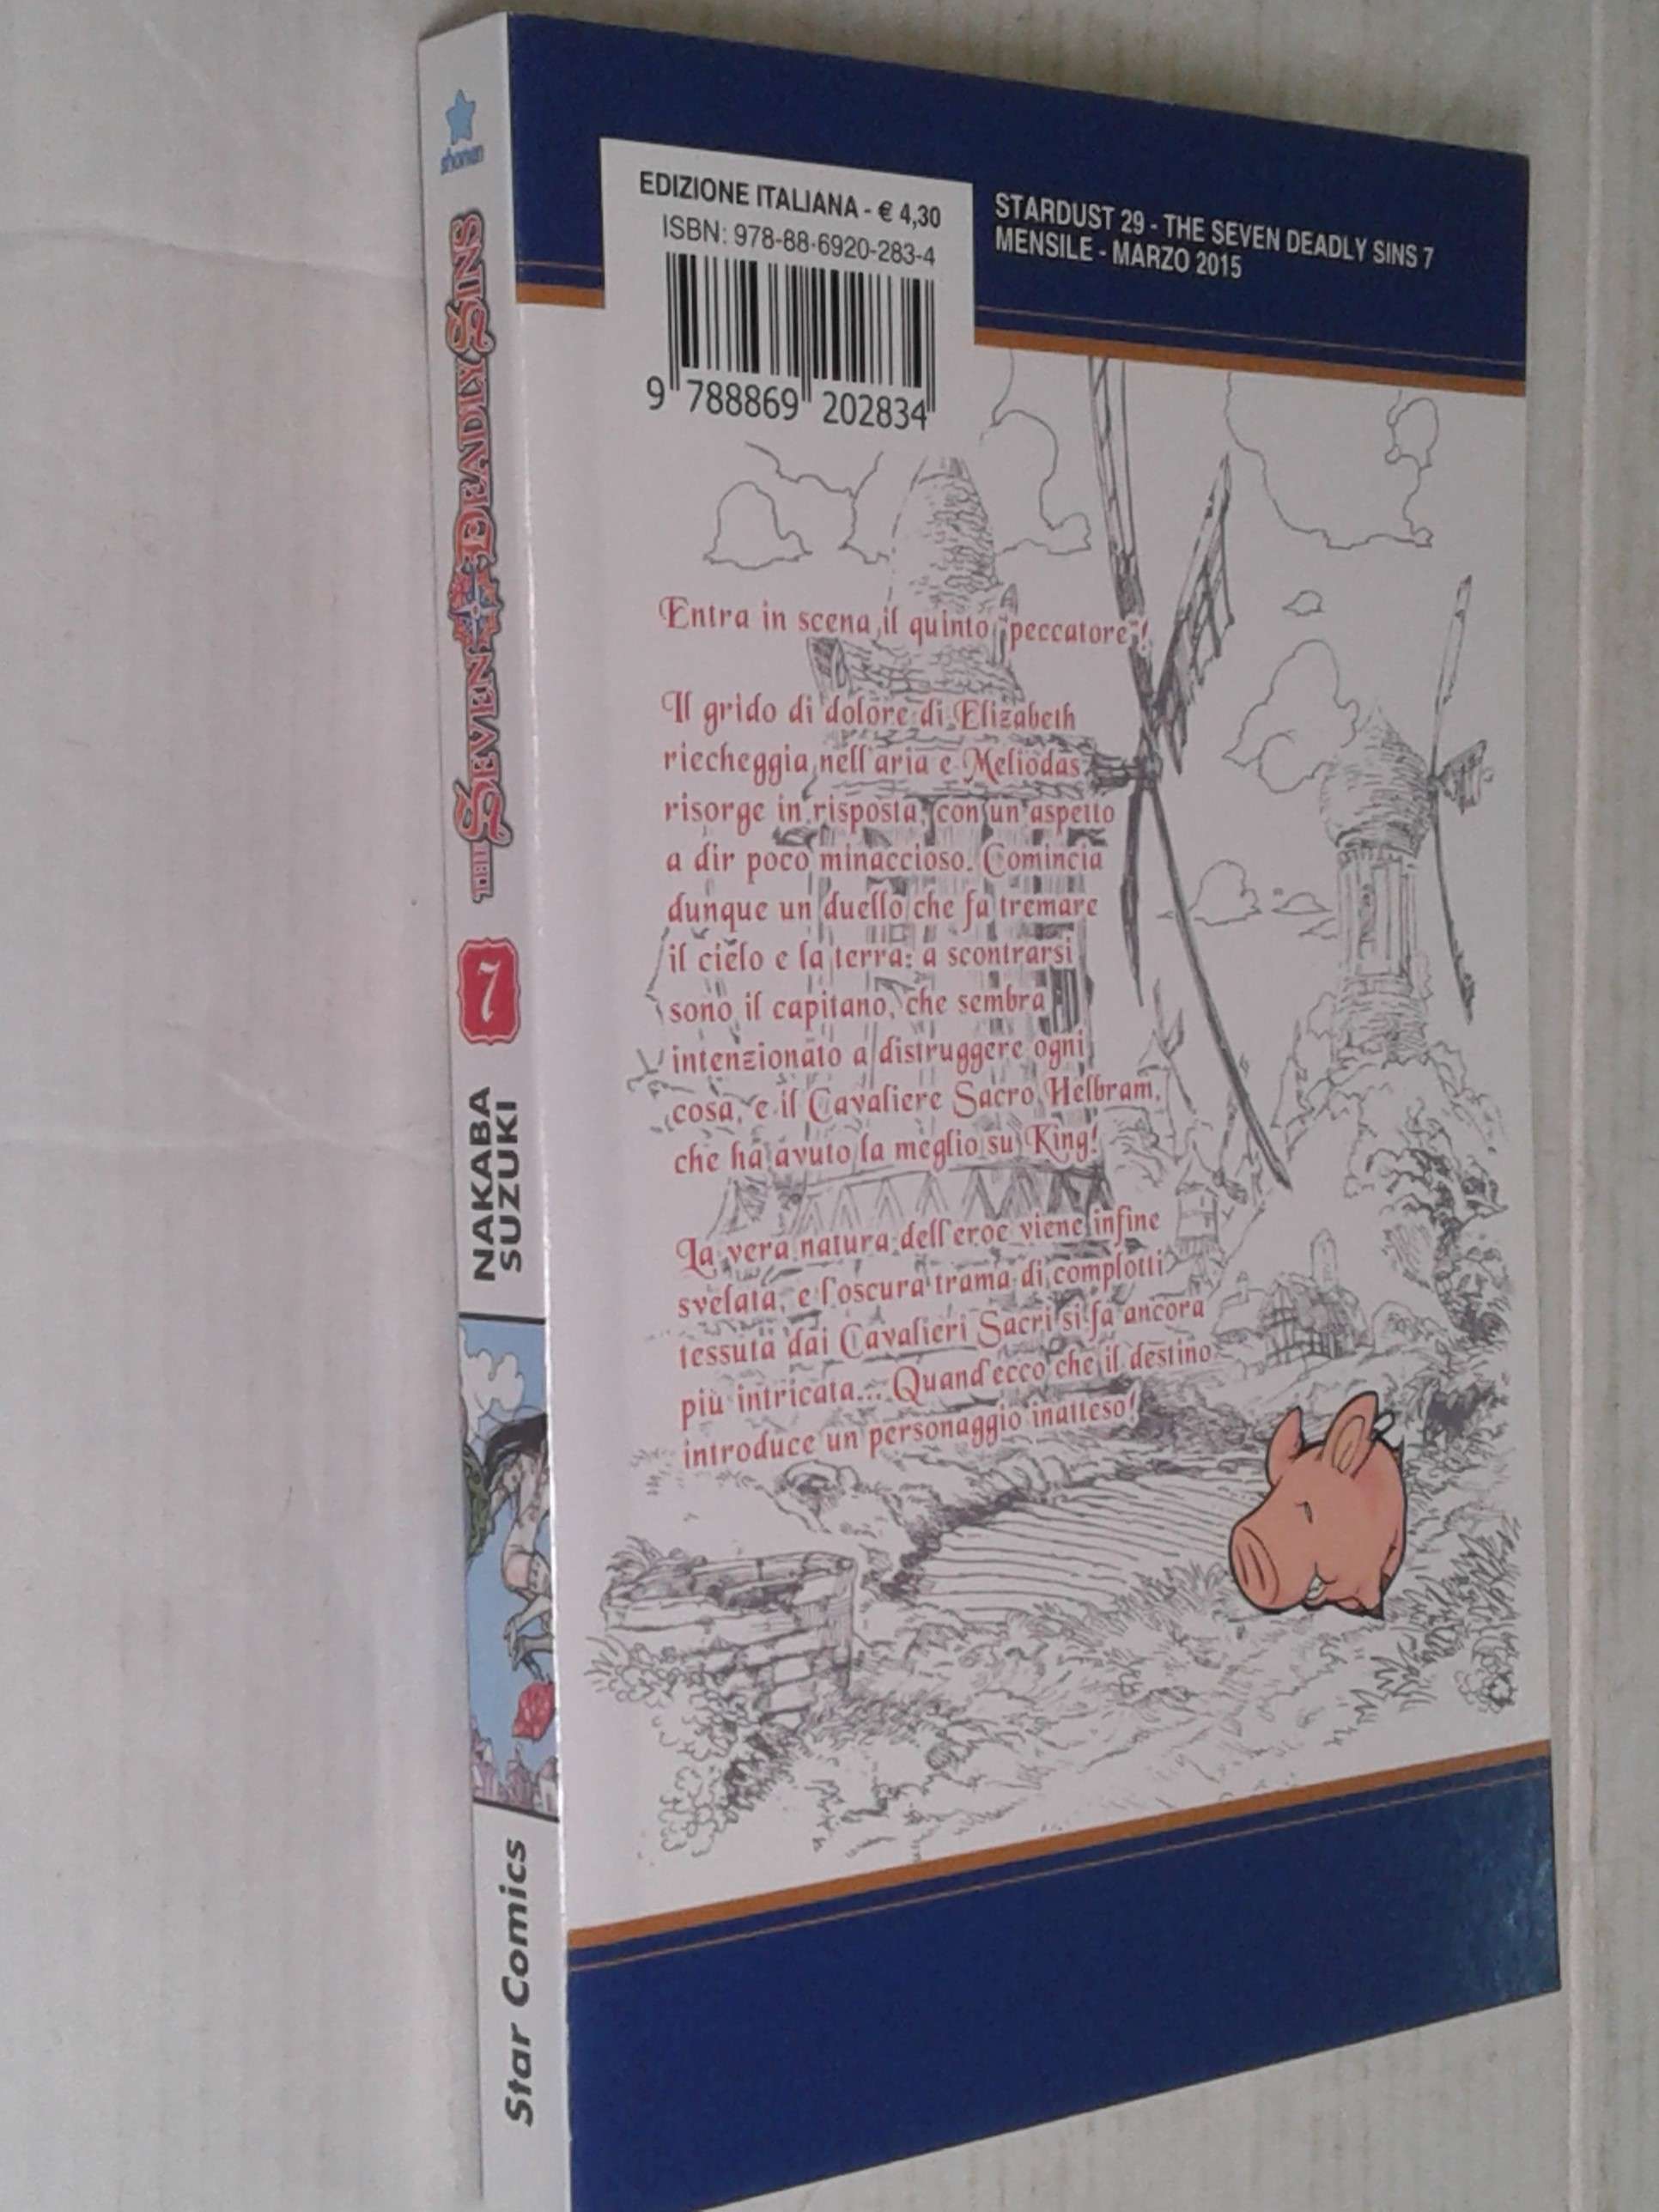 shonen
THE SEVEN DEADLY SINS
7
NAKABA
SUZUKI
Star Comics
EDIZIONE ITALIANA - € 4,30
ISBN: 978-88-6920-283-4
9 788869 202834
STARDUST 29 - THE SEVEN DEADLY SINS 7
MENSILE - MARZO 2015
Entra in scena il quinto "peccatore"!
Il grido di dolore di Elizabeth
riecheggia nell'aria e Meliodas
risorge in risposta, con un aspetto
a dir poco minaccioso. Comincia
dunque un duello che fa tremare
il cielo e la terra: a scontrarsi
sono il capitano, che sembra
intenzionato a distruggere ogni
cosa, e il Cavaliere Sacro Helbram,
che ha avuto la meglio su King!
La vera natura dell'eroe viene infine
svelata, e l'oscura trama di complotti
tessuta dai Cavalieri Sacri si fa ancora
più intricata... Quand'ecco che il destino
introduce un personaggio inatteso!